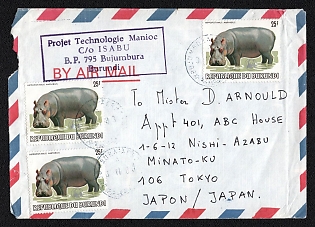 Projet Technologie Manioc
C/o ISABU
B.P. 795 Bujumbura
Burundi
BY AIR MAIL
25F
REPUBLIQUE DU BURUNDI
25F
REPUBLIQUE DU BURUNDI
25F
REPUBLIQUE DU BURUNDI
To Mister D. ARNOULD
Appt 401, ABC HOUSE
1-6-12 NISHI-AZABU
MINATO-KU
106 TOKYO
JAPON / JAPAN.